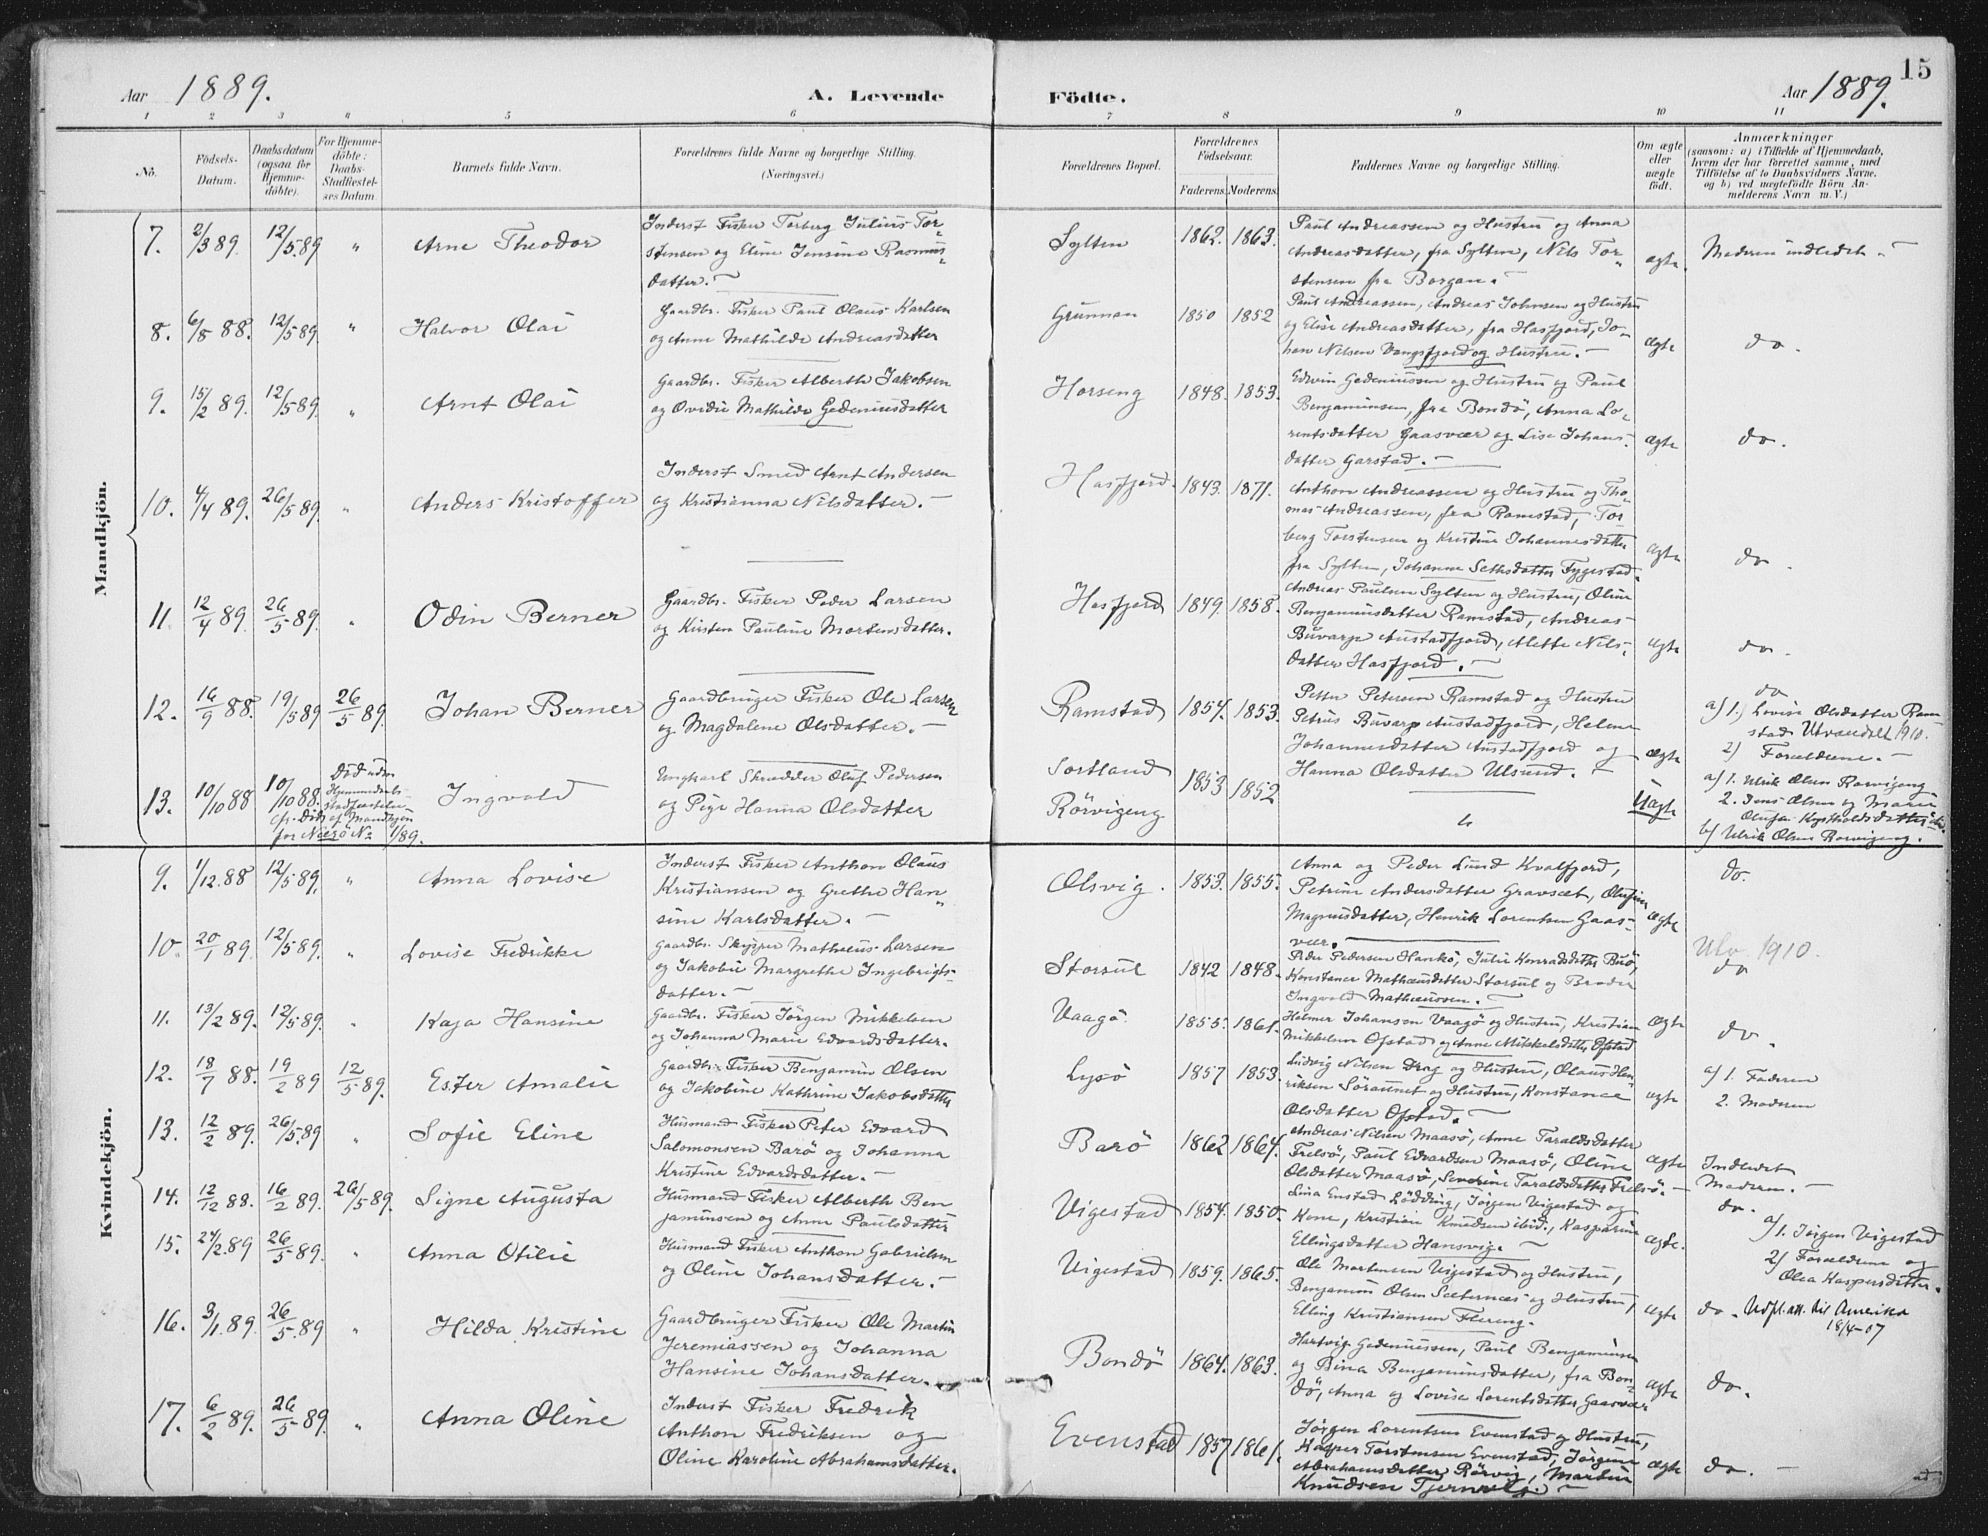 15
Aar 1889. A. Levende Födte. Aar 1889.
1 2 3 4 5 6 7 8 9 10 11
No. Födsels-Datum. Daabsdatum (ogsaa for Hjemme-döbte). For Hjemme-döbte: Daabs-Stadfæstel-ses Datum. Barnets fulde Navn. Forældrenes fulde Navne og borgerlige Stilling. (Næringsvei.) Forældrenes Bopæl. Forældrenes Födselsaar. Faderens. Moderens. Faddernes Navne og borgerlige Stilling. Om ægte eller uægte födt. Anmærkninger (saasom: a) i Tilfælde af Hjemmedaab, hvem der har forrettet samme, med Tilföielse af to Daabsvidners Navne. og b) ved uægtefödte Börn An-melderens Navn m. V.)
Mandkjön.
7. 2/3 89. 12/5 89 " Arne Theodor
Inderst Fisker Torberg Julius Tor-
stensen og Eline Jensine Rasmus-
datter.
Sylten 1862. 1863.
Paul Andreassen og Hustru og Anna
Andreasdatter, fra Sylten, Nils Tor-
stensen fra Borgan.
ægte. Moderen indledet.
8. 6/8 88. 12/5 89 " Halvor Olai
Gaardbr. Fisker Paul Olaus Karlsen
og Anne Mathilde Andreasdatter
Grunnan 1850 1852
Paul Andreassen, Andreas Johnsen og Hustru
og Elise Andreasdatter, fra Hasfjord, Jo-
han Nilsen Vangsfjord og Hustru.
ægte do.
9. 15/2 89. 12/5 89 " Arnt Olai
Gaardbr. Fisker Alberth Jakobsen
og Ovidie Mathilde Gedeniusdatter
Horseng 1848. 1853.
Edvin Gedeniussen og Hustru og Paul
Benjaminsen, fra Bondö, Anna Lo-
rentsdatter Gaasvær og Lise Johans-
datter Garstad.
ægte do.
10. 4/4 89. 26/5 89. " Anders Kristoffer
Inderst Smed Arnt Andersen
og Kristianna Nilsdatter.
Hasfjord. 1843. 1871.
Anthon Andreassen og Hustru og Tho-
mas Andreassen, fra Ramstad, Tor-
berg Torstensen og Kristine Johannesdatter
fra Sylten, Johanna Sethsdatter Fygestad.
ægte do.
11. 12/4 89. 26/5 89. " Odin Berner
Gaardbr. Fisker Peder Larsen
og Kirsten Pauline Mortensdatter.
Hasfjord 1849. 1858.
Andreas Paulsen Sylten og Hustru, Oline
Benjaminsdatter Ramstad, Andreas
Buvarp Austadfjord, Mette Nils-
datter Hasfjord.
ægte do.
12. 16/9 88. 19/5 89 26/5 89. Johan Berner
Gaardbruger Fisker Ole Larsen
og Magdalene Olsdatter.
Ramstad 1854. 1853.
Petter Petersen Ramstad og Hustru
Petrus Buvarp Austadfjord, Helene
Johannesdatter Austadfjord og
Hanna Olsdatter Ulsund.
ægte do
a) 1.) Lovise Olsdatter Ram
stad Utvandelt 1910.
2) Forældrene.
13. 10/10 88 10/10 88. Död uden Hjemmedaabs-stadfæstelse cfr. Döde af Mandkjön for Nærö No 1/89. Ingvald
Ungkarl Skrædder Oluf Pedersen
og Pige Hanna Olsdatter
Sortland
Rörvigeng 1853 1852
"
Uægte
a) 1. Ulrik Olsen Rörvigeng
2. Jens Olsen og Maria
Olufa Kystholdsdatter ibd.
b) Ulrik Olsen Rörvigeng.
Kvindekjön.
9. 1/12. 88 12/5 89. " Anna Lovise
Inderst Fisker Anthon Olaus
Kristiansen og Grethe Han-
sine Karlsdatter.
Olsvig. 1853. 1855.
Anna og Peder Lund Kvalfjord,
Petrine Andersdatter Gravsæt, Olufine
Magnusdatter, Henrik Lorentsen Gaas-
vær.
ægte do.
10. 20/1 89. 12/5 89. " Lovise Fredrikke
Gaardbr. Skipper Mathæus Larsen
og Jakobie Margrethe Ingebrigts-
datter.
Storsul 1842 1848.
Peder Pedersen Hankö, Julie Konradsdatter Buö,
Konstance Mathæusdatter Storsul og Broder
Ingvald Mathæussen.
Utv. 1910.
do
11. 13/2 89. 12/5 89. " Kaja Hansine
Gaardbr. Fisker Jörgen Mikkelsen
og Johanna Marie Edvardsdatter.
Vaagö 1855. 1861.
Helmer Johansen Vaagö og Hustru, Kristian
Mikkelsen Ofstad og Anne Mikkelsdatter Ofstad
ægte do.
12. 18/7 88. 19/2 89 12/5 89. Ester Amalie
Gaardbr. Fisker Benjamin Olsen
og Jakobine Kathrine Jakobsdatter
Lysö 1857 1853.
Ludvig Nilsen Drag og Hustru, Olaus Hen-
riksen Söraunet og Hustru, Konstance
Olsdatter Ofstad.
ægte
a) 1. Faderen
2. Moderen
13. 12/2 89. 26/5. 89 " Sofie Eline
Husmand Fisker Peter Edvard
Salomonsen Barö og Johanna
Kristine Edvardsdatter.
Barö 1862 1864.
Andreas Nilsen Maasö, Anne Taraldsdatter
Frelsö, Paul Edvardsen Maasö, Oline
Olsdatter Maasö, Severine Taraldsdatter Frelsö.
ægte Indledet
Moderen.
14. 12/12 88. 16/2 89. 26/5 89. Signe Augusta
Husmand Fisker Alberth Ben
jaminsen og Anne Paulsdatter
Vigestad 1854. 1850.
Lina Enstad Lödding, Jörgen Vigestad og
Kone, Kristian Knudsen ibid., Kasparine
Ellingsdatter Hansvig.
ægte. do.
a) 1. Jörgen Vigestad
2) Forældrene og
Olea Kaspersdatter.
15. 24/2. 89 26/5 89. " Anna Otilie
Husmand Fisker Anthon Gabrielsen
og Oline Johansdatter.
Vigestad 1859. 1865.
Ole Mortensen Vigestad og Hustru,
Benjamin Olsen Sæternæs og Hustru,
Elling Kristiansen Flereng.
ægte do. Udfl. att. til Amerika
18/4-07
16. 3/1. 89. 26/5. 89 " Hilda Kristine
Gaardbruger Fisker Ole Martin
Jeremiassen og Johanna
Hansine Johansdatter.
Bondö 1864. 1863.
Hartvig Gedeniussen, Paul Benjaminsen
og Bina Benjaminsdatter, fra Bon-
dö, Anna og Lovise Lorentsdatter Gaasvær
ægte do.
17. 6/2 89. 26/5 89. " Anna Oline
Inderst Fisker Fredrik
Anthon Fredriksen og
Oline Karoline Abrahamsdatter.
Evenstad 1857 1861.
Jörgen Lorentsen Evenstad og Hustru,
Kasper Torstensen Evenstad, Jörgine
Abrahamsdatter Rörvig, Martin
Knudsen
ægte do.